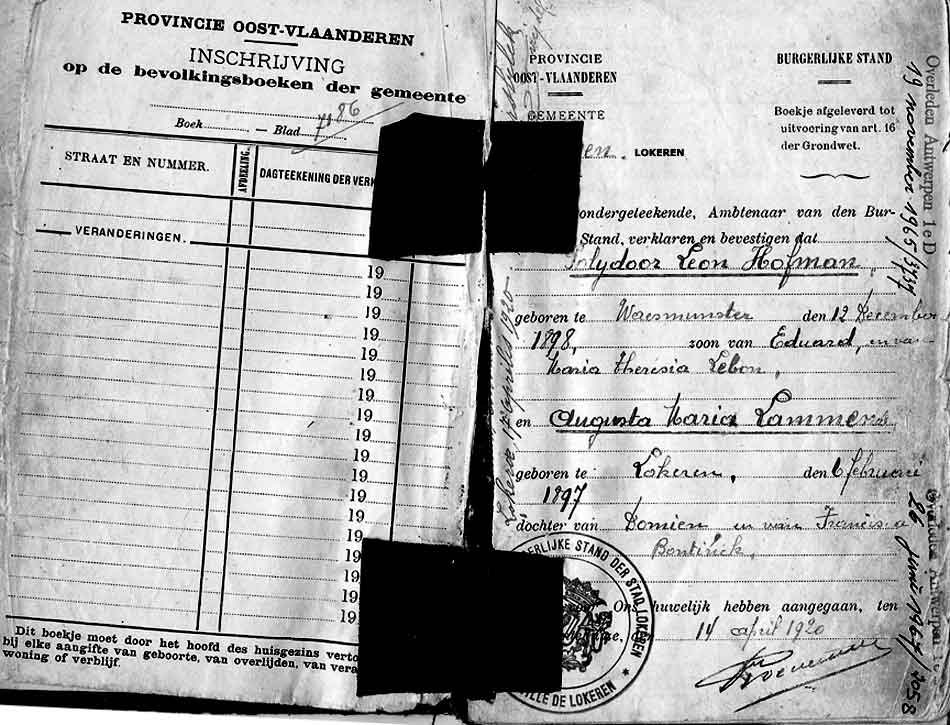 PROVINCIE OOST-VLAANDEREN
INSCHRIJVING
op de bevolkingsboeken der gemeente
Boek — Blad 86
STRAAT EN NUMMER.
AFDEELING.
DAGTEEKENING DER VERK
VERANDERINGEN.
19
19
19
19
19
19
19
19
19
19
19
19
19
19
19
19
19
19
Dit boekje moet door het hoofd des huisgezins verto
bij elke aangifte van geboorte, van overlijden, van vera
woning of verblijf.
PROVINCIE
OOST-VLAANDEREN
GEMEENTE
LOKEREN
BURGERLIJKE STAND
Boekje afgeleverd tot
uitvoering van art. 16
der Grondwet.
ondergeteekende, Ambtenaar van den Bur-
Stand, verklaren en bevestigen dat
Polydoor Leon Hofman,
geboren te Waesmunster den 12 December
1898, zoon van Eduard, en van
Maria Theresia Lebon,
en Augusta Maria Lammens
geboren te Lokeren, den 6 februari
1897
dochter van Domien en van Francisca
Bontinck,
Ons huwelijk hebben aangegaan, ten
14 april 1920
BURGERLIJKE STAND DER STAD LOKEREN
VILLE DE LOKEREN
Lokeren, 14 april 1920
Overleden Antwerpen 1e D
19 november 1965
Overleden Antwerpen
26 juni 1967/2058